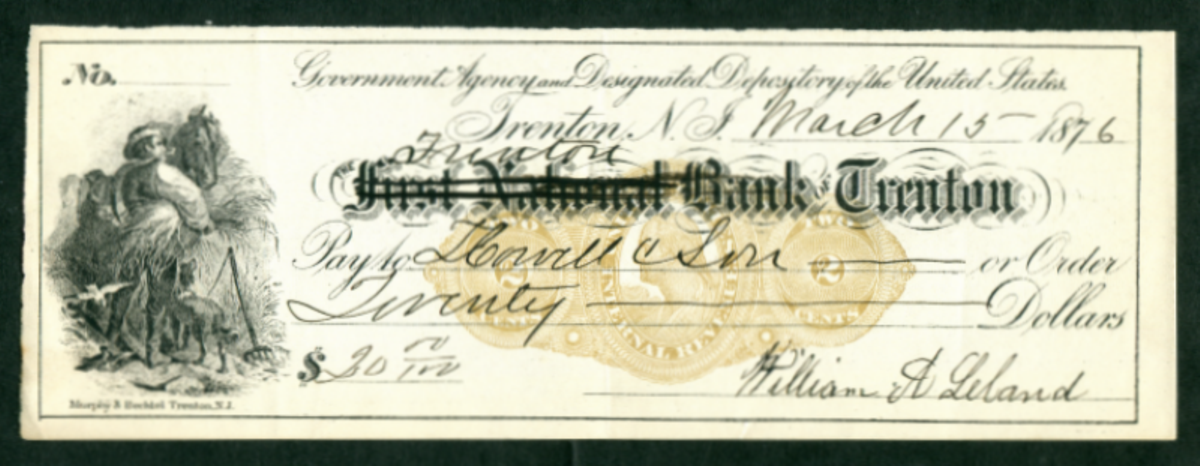 No.
Government Agency and Designated Depository of the United States.
Trenton, N. J. March 15 1876
Trenton
THE First National Bank OF Trenton
Pay to Howell & Son or Order
Twenty Dollars
$20 00/100
William A Leland
TWO 2 CENTS
INTERNAL REVENUE
TWO 2 CENTS
Murphy & Bechtel Trenton, N.J.